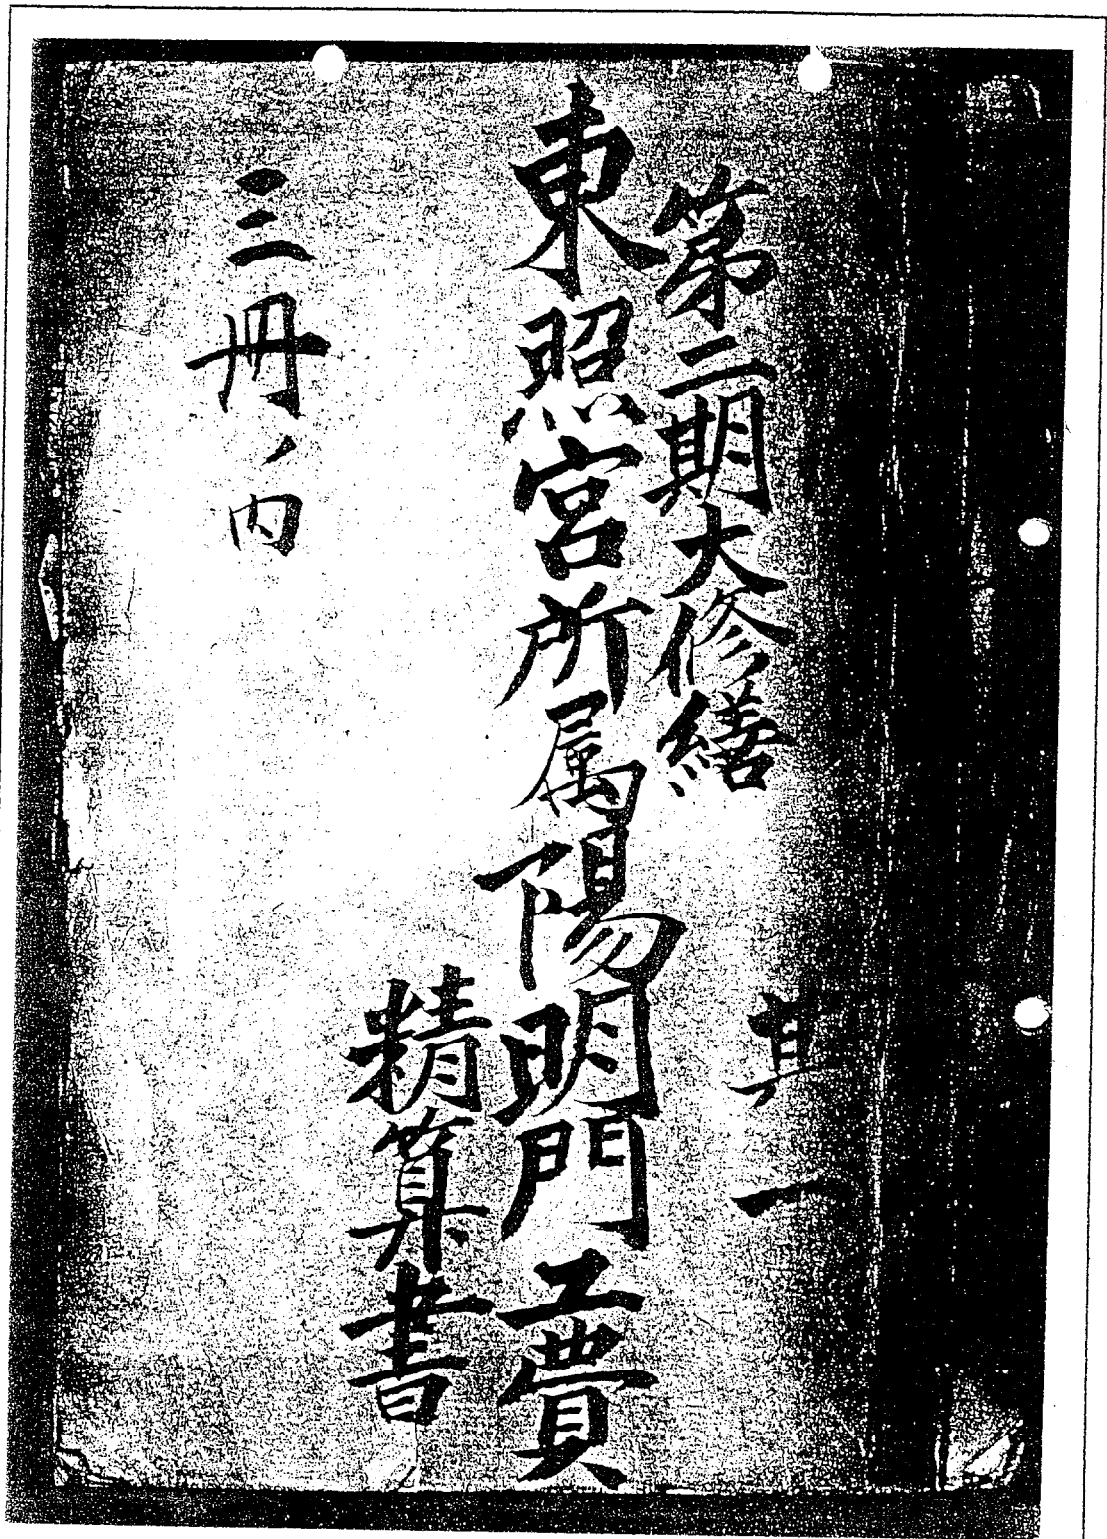 第二期大修繕
其一
東照宮所属陽明門工費
精算書
三冊ノ内